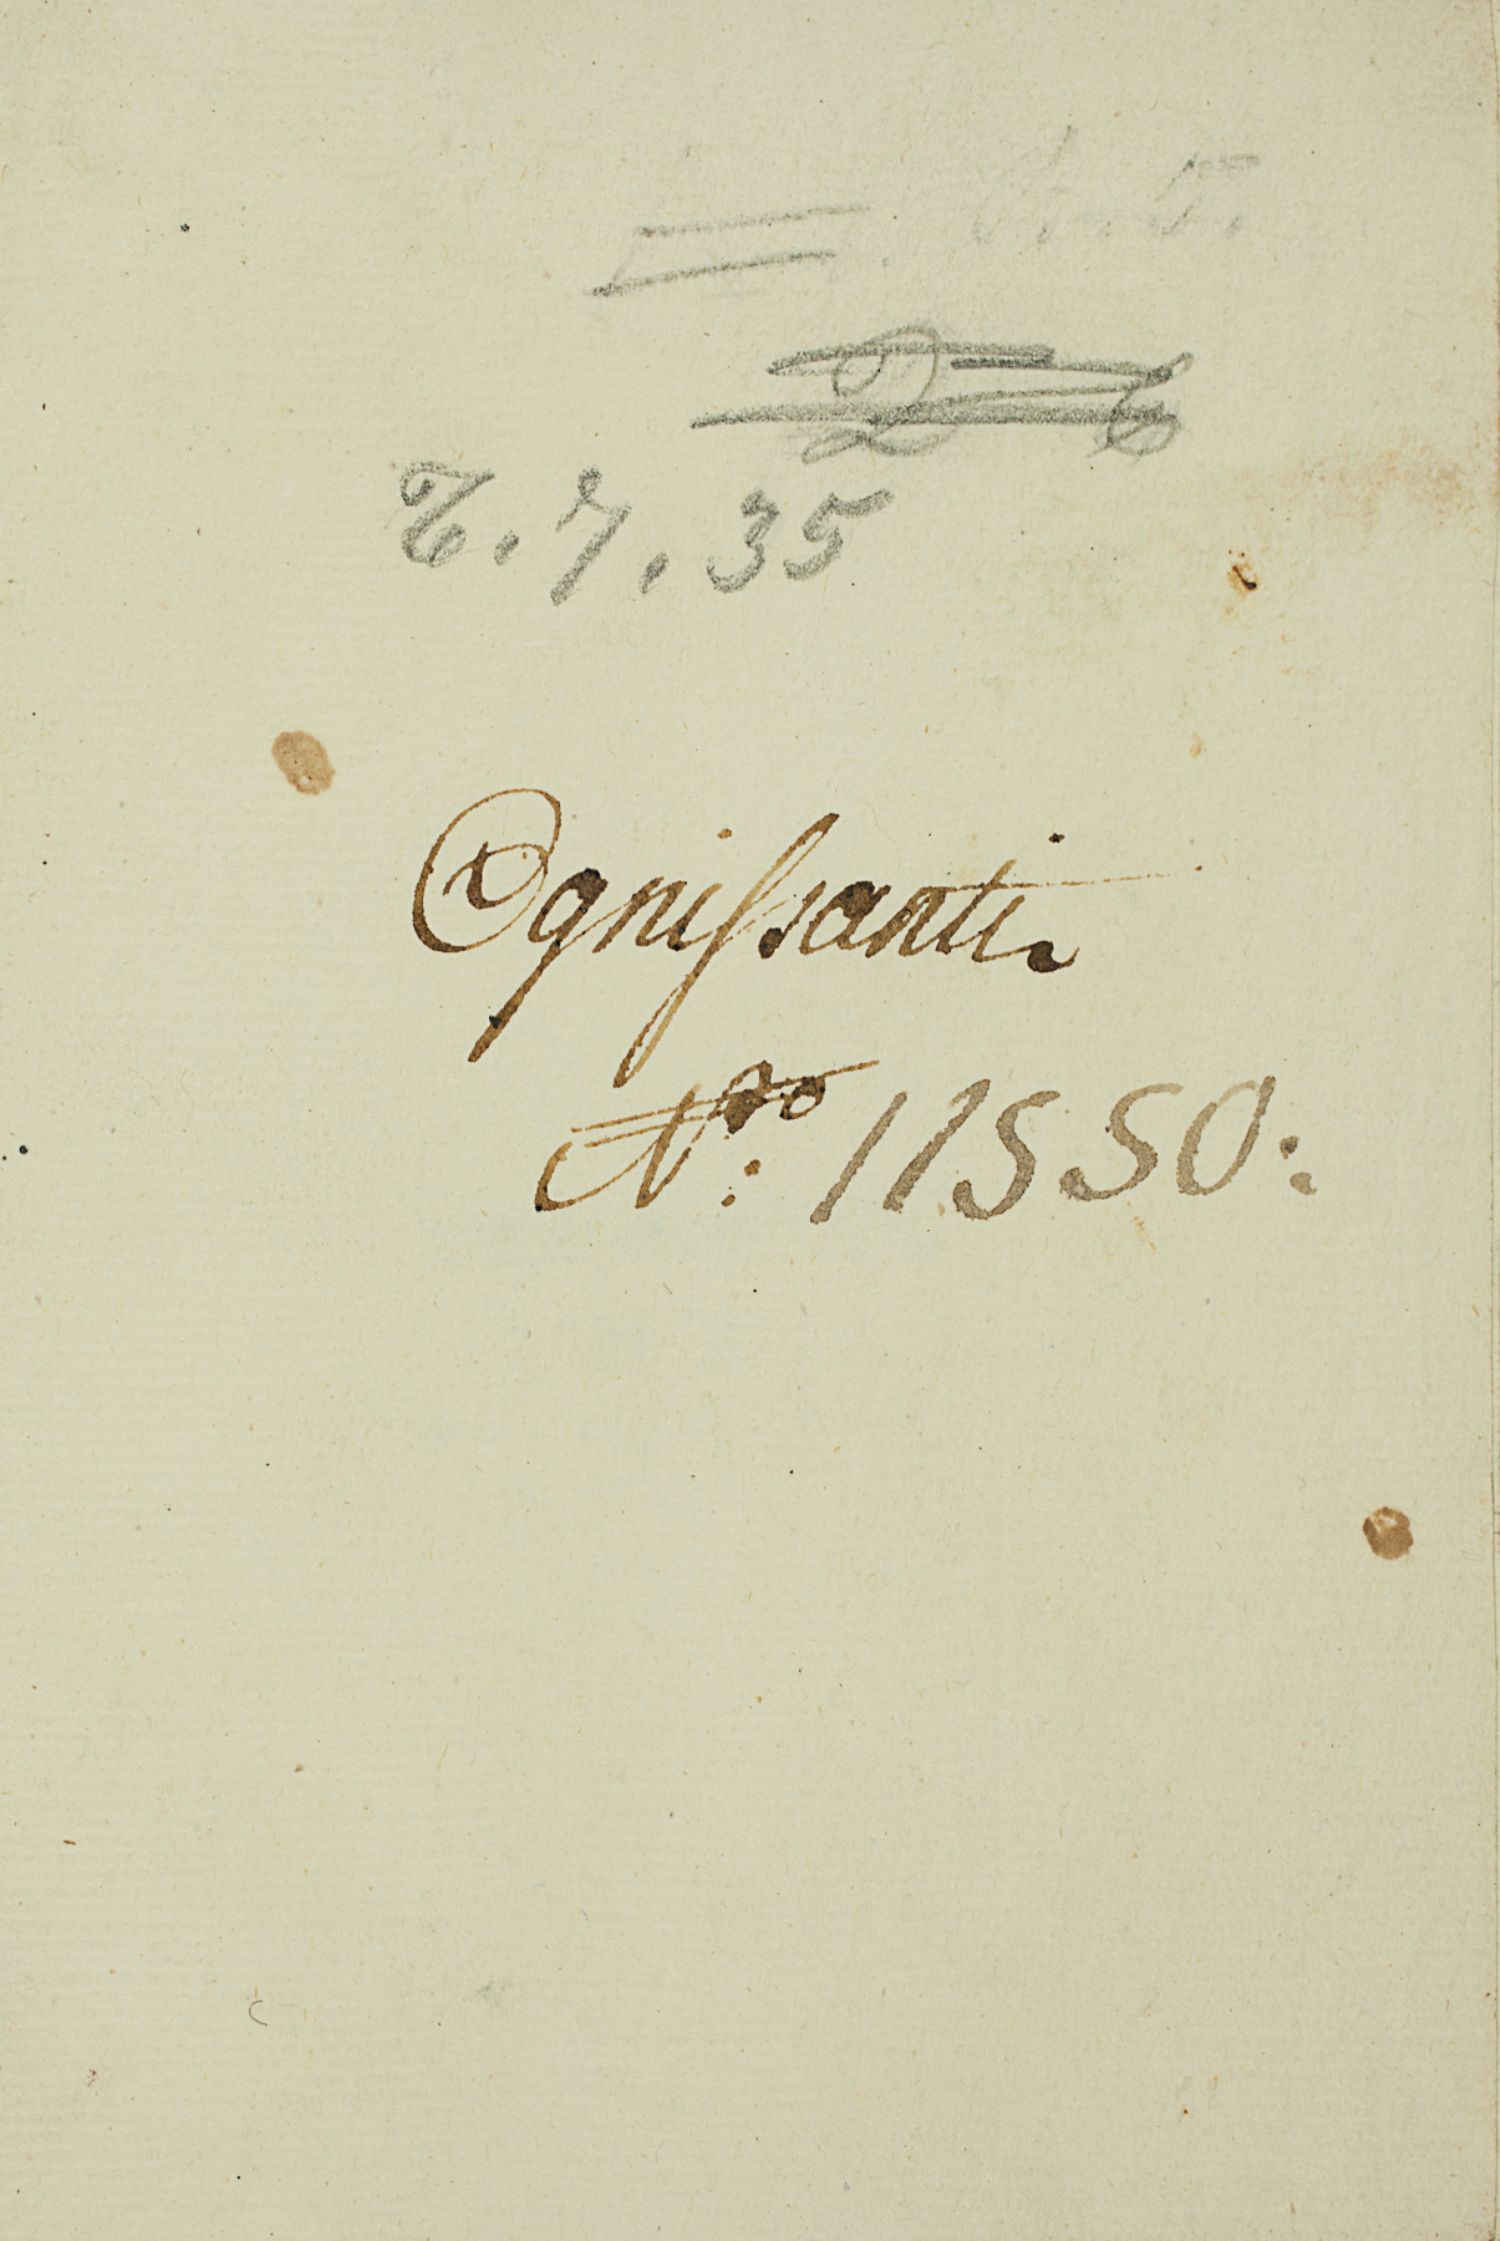 T. 7. 35
Ognissanti
Nro: 11550: